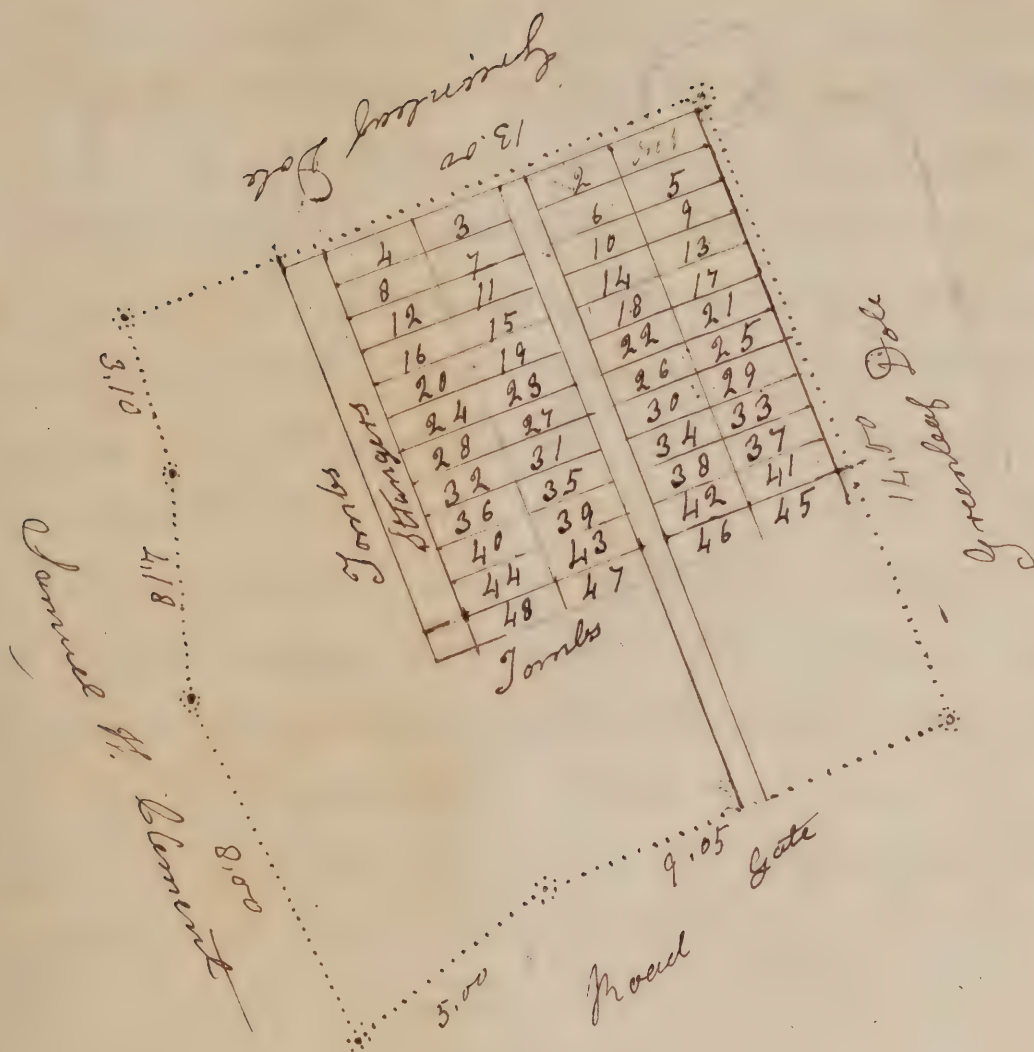 Greenleaf Dole
13.00
4 3 2
8 7 6 5
12 11 10 9
16 15 14 13
20 19 18 17
24 23 22 21
28 27 26 25
32 31 30 29
36 35 34 33
40 39 38 37
44 43 42 41
48 47 46 45
Strangers
Tombs
Tombs
14.50
Greenleaf Dole
3,10
4,18
8,00
Samuel H. Clement
5,00
9.05
Gate
Road